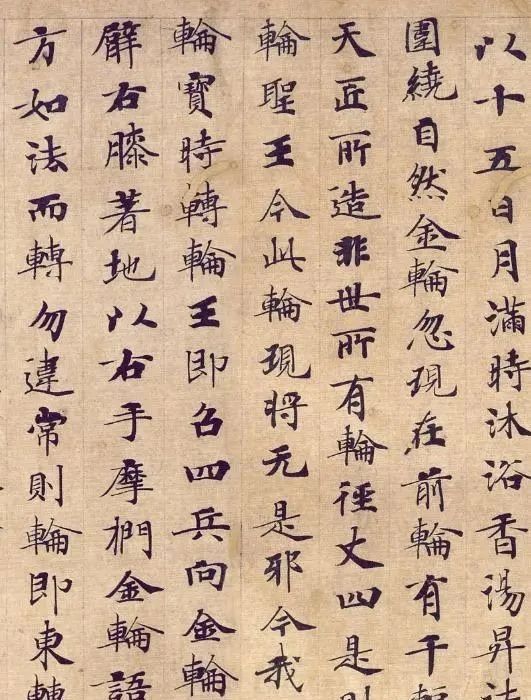 以十五日月滿時沐浴香湯昇法
圍繞自然金輪忽現在前輪有千輻
天匠所造非世所有輪徑丈四是則
輪聖王今此輪現將无是邪今我
輪寶時轉輪王即召四兵向金輪
臂右膝著地以右手摩捫金輪語
方如法而轉勿違常則輪即東轉